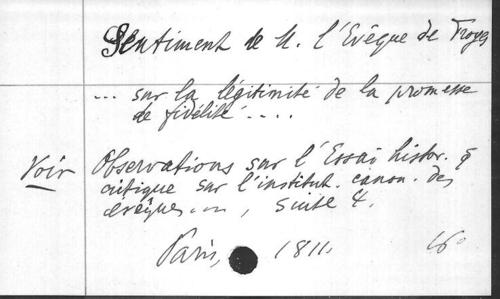 Sentiment de M. l'Evêque de Troyes
... sur la légitimité de la promesse
de fidélité ....
Voir Observations sur l'Essai histor. &
critique sur l'institut. canon. des
évêques ..., suite 4.
Paris, 1811. 16°